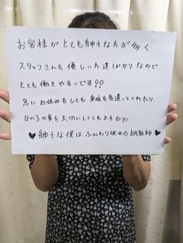 お客様がとても紳士な方が多く
スタッフさんも優しい方達ばかりなので
とても働きやすいです!!
急にお休みをしても 気遣ってくれたり
女の子の事を大切にしてくれます
♥紳士な僕はふんわり ♥